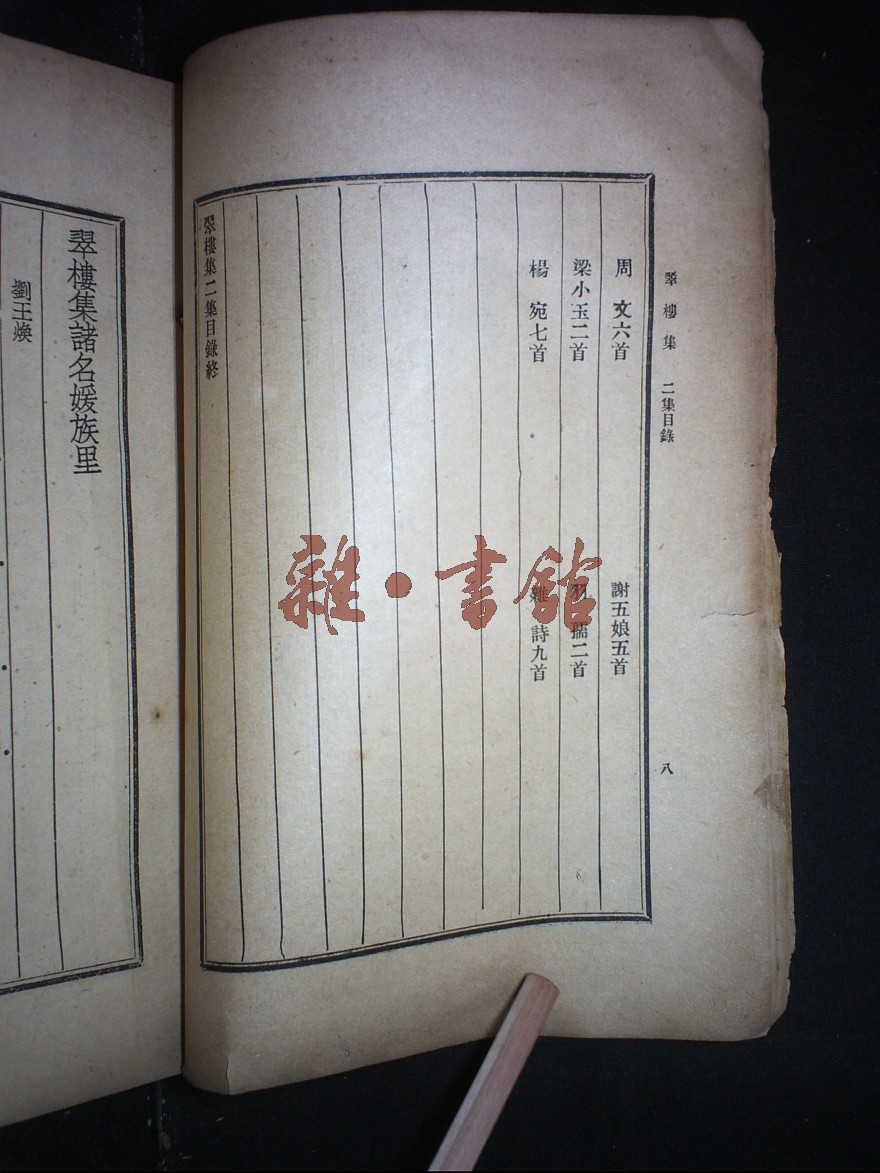 翠樓集　二集目錄
八
周　文六首
謝五娘五首
梁小玉二首
羽　孺二首
楊　宛七首
雜　詩九首
翠樓集二集目錄終
翠樓集諸名媛族里
劉王煥
雜·書館